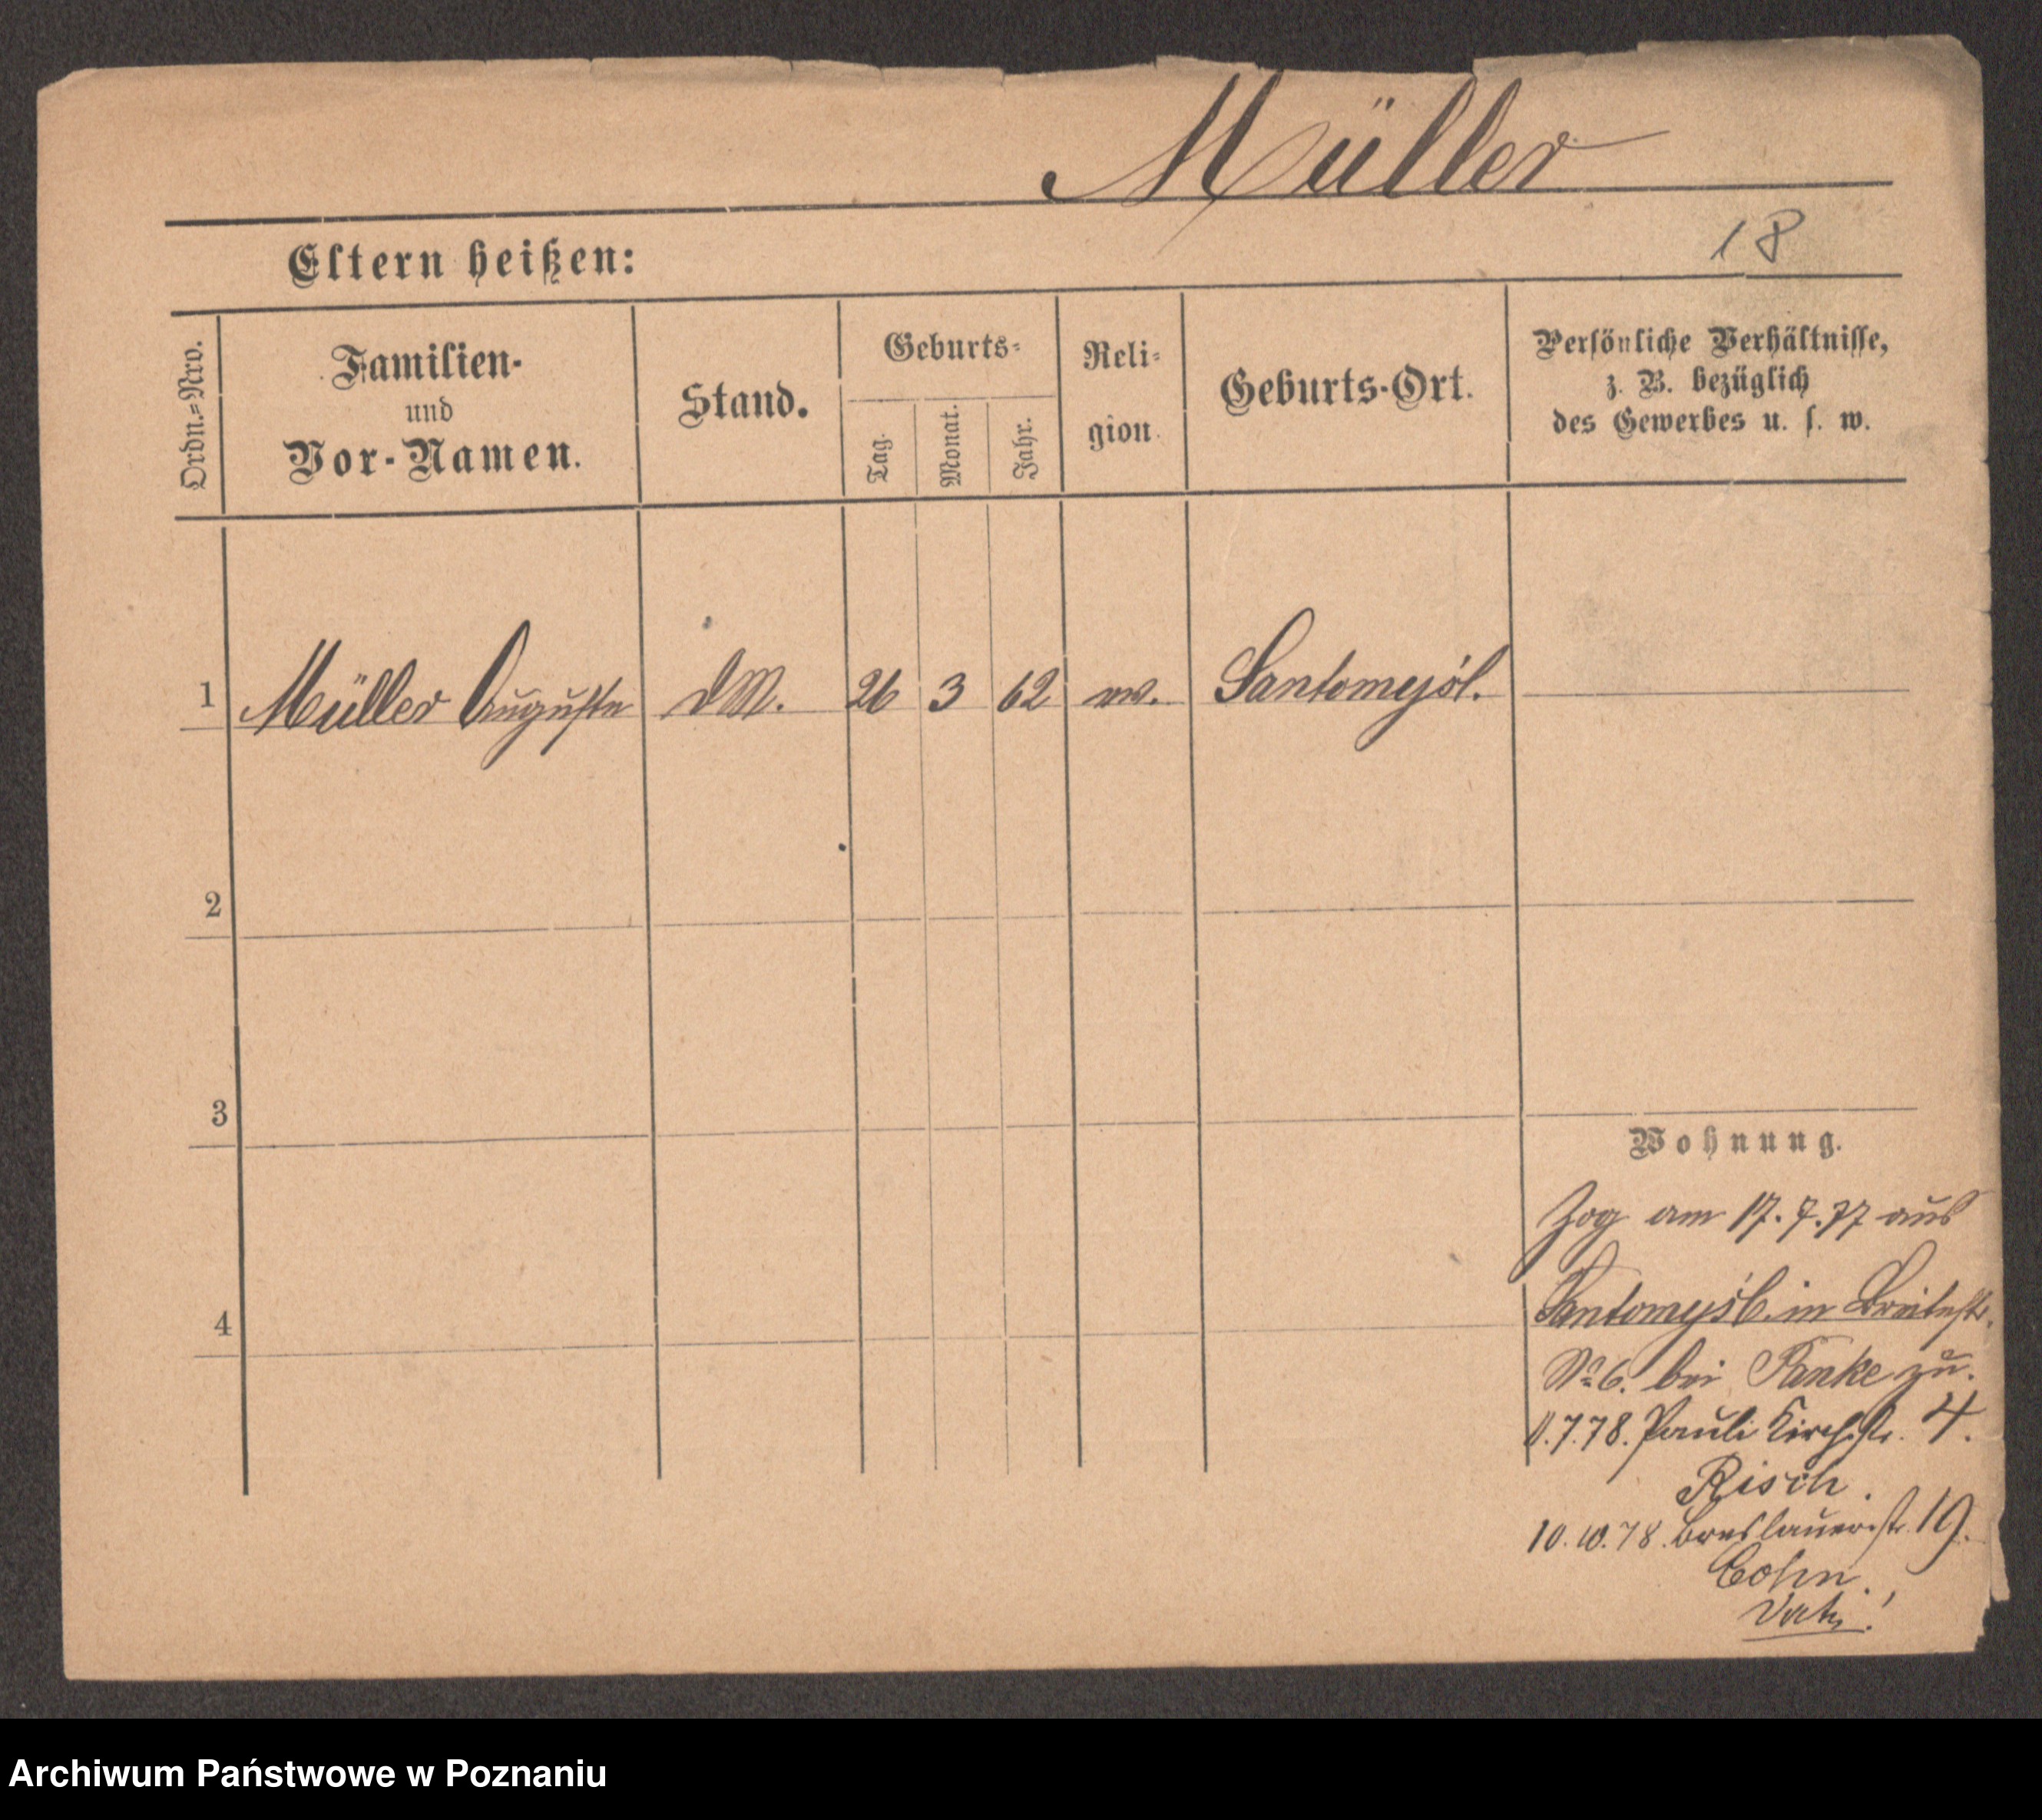 Müller
18
Eltern heißen:
Ordn.=Nro.
Familien-
und
Vor-Namen.
Stand.
Geburts=
Tag.
Monat.
Jahr.
Reli=
gion.
Geburts-Ort.
Persönliche Verhältnisse,
z. B. bezüglich
des Gewerbes u. s. w.
1 Müller Auguste d M. 26 3 62 ev. Santomyśl.
2
3
4
Wohnung.
Zog am 17.7.77 aus
Santomyśl. in Breitestr.
No 6. bei Panke zu.
11.7.78. Pauli Kirchstr. 4.
Risch.
10.10.78. Breslauerstr. 19.
Cohn.
Archiwum Państwowe w Poznaniu